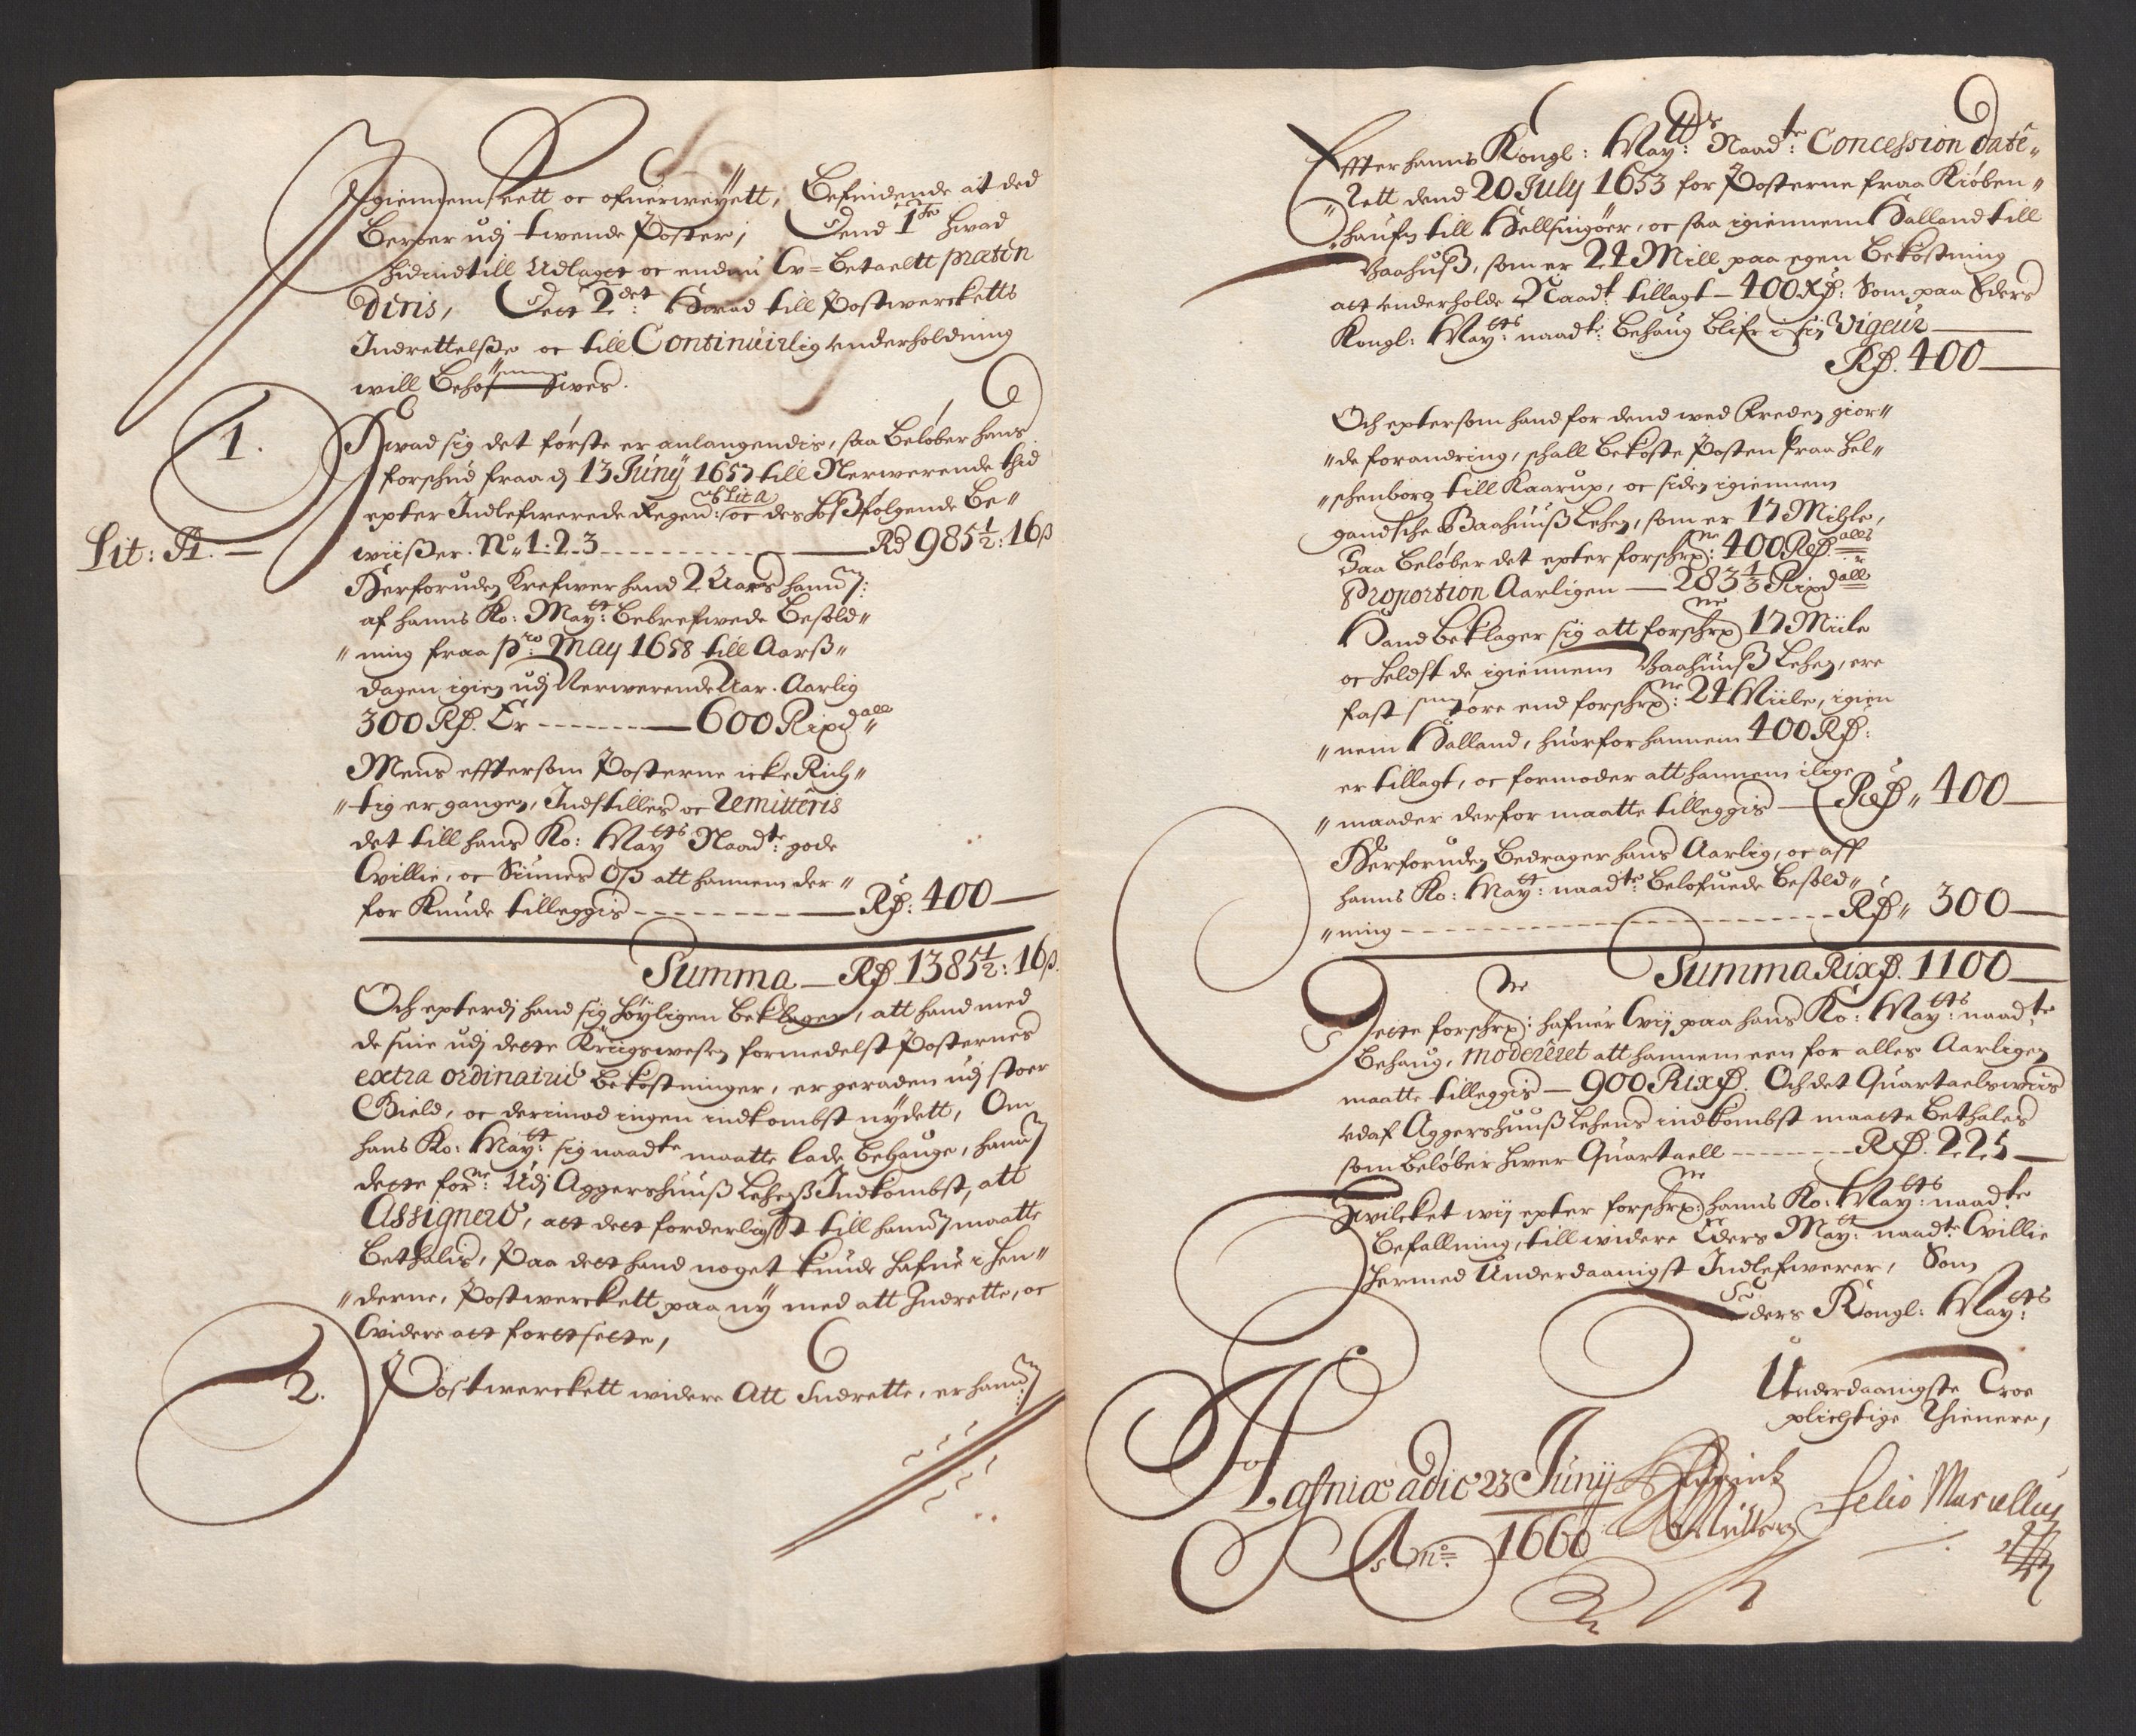 Igiennemseett oc ofuerweyett, Befindende at ded
Beroer udj twende Poster, Dend 1ste hwad
hidindtill Udlaget oc endnu Uv=Betaeltt præten
deris, Dett 2det Hwad till Postwerckets
Indrettelße oc till Continuirlig underholdning
will Behofwes.
1.
Hwad sig det første er anlangendis, saa Beløber hans
forschud fraa d 13 Junÿ 1653 till Nerwerende thid
epter Indlefwerede Regen: sub Lit A oc des hoßfølgende Be"
Lit: A. —
wiißer. No. 1. 2. 3 — Rd 985½: 16ß
Herforuden Krefwer hand 2 Aars hannem:
af hanns Ko: Maytt: Bebrefwede Besold"
"ning fraa pro: May 1658 till Aarß"
dagen igien udj Nerwerende Aar. Aarlig
300 Rd. Er — 600 Rixdall"
Mens efftersom Posterne icke Rich"
"tig er gangen, Indstilles oc Remitteris
det till hans Ko: Maytts Naadte: gode
Willie, oc Siunes Oß att hannem der"
for Kunde tilleggis — Rd: 400 —
Summa — Rd 1385½: 16ß.
Och epterdj hand sig høyligen Beklager, att hand med
de sine udj dette Kriigswesen formedelst Posternes
extra ordinairie Bekostninger, er geraden udj stoer
Gield, oc derimod ingen indkombst nÿdett, Om
hans Ko: Maytt: sig naadte maatte lade Behauge, hannem
dette forne: Udj Aggershuuß Lehenß Indkombst, att
Assignere, att dett forderligst till hannem maatte
Bethalis, Paa dett hand noget kunde hafue i hen"
"derne, Postwerckett paa nÿ med att Indrette, oc
widere att forttsette,
2.
Postwerckett widere Att Indrette, er hannem
Effter hanns Kongl: Maytts: Naadte: Concession date"
"rett dend 20 July 1653 for Posterne fraa Kiøben"
"haufn till Hellsingøer, oc saa igiennem Halland till
Baahuß, som er 24 Mill paa egen Bekostning
att underholde Naadt: tillagt — 400 Rd: Som paa Eders
Kongl: Maytts: naadt: Behaug Blifr i sin Vigeur —
Rd. 400 —
Och eptersom hand for dend wed freden gior"
"de forandring, schall Bekoste Posten fraa Hel"
"schenborg till Kaarup, oc siden igiennem
gandsche Baahuuß Lehen, som er 17 Mihle,
Saa Beløber det epter forschrne: 400 Rdalls
Proportion Aarligen — 283⅓ Rixdall
Hand Beklager sig att forschrne 17 Miile
oc heldst de igiennem Baahuuß Lehen, ere
fast større end forschrne: 24 Miile, igien
"nem Halland, huorfor hannem 400 Rd:
er tillagt, oc formoder att hannem ilige
"maader derfor maatte tilleggis — Rd" 400 —
Herforuden Bedrager hans Aarlig, oc aff
hanns Ko: Maytt: naadte: Belofuede Besold"
"ning — Rd" 300 —
Summa Rixd. 1100 —
Dette forschrne: hafuer Wij paa hans Ko: Maytts: naadte
Behaug, moderèret att hannem een for alles Aarligen
maatte tilleggis — 900 Rixd. Och det Quartaelswiis
udaf Aggershuuß Lehens indkombst maatte Bethales
som Beløber hwer Quartaell — Rd. 225 —
Hwilcket wij epter forschrne: hanns Ko: Maytts: naadte
Befallning, till widere Eders Maytt: naadte: Willie
hermed Underdaanigst Indlefwerer, Som
Eders Kongl: Maytts:
Underdaanigste Troe
plichtige Thienere,
Hafniæ adie 23 Junÿ
Ano. 1660
Henrich
Müller
Selio Marsellus